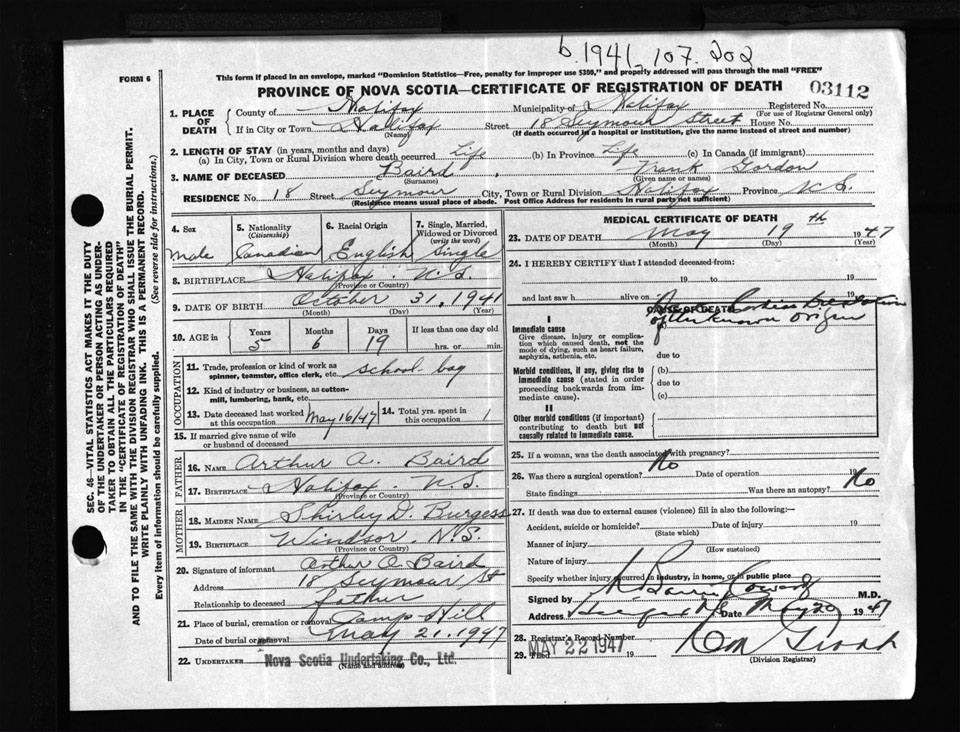 b 1941, 107. 202
FORM 6
This form if placed in an envelope, marked "Dominion Statistics—Free, penalty for improper use $300," and properly addressed will pass through the mail "FREE"
PROVINCE OF NOVA SCOTIA—CERTIFICATE OF REGISTRATION OF DEATH 03112
SEC. 46—VITAL STATISTICS ACT MAKES IT THE DUTY
OF THE UNDERTAKER OR PERSON ACTING AS UNDER-
TAKER TO OBTAIN ALL THE PARTICULARS REQUIRED
IN THE "CERTIFICATE OF REGISTRATION OF DEATH"
AND TO FILE THE SAME WITH THE DIVISION REGISTRAR WHO SHALL ISSUE THE BURIAL PERMIT.
WRITE PLAINLY WITH UNFADING INK. THIS IS A PERMANENT RECORD.
Every item of information should be carefully supplied. (See reverse side for instructions.)
1. PLACE OF DEATH County of Halifax Municipality of Halifax Registered No.
(For use of Registrar General only)
If in City or Town Halifax Street 18 Seymour Street House No.
(Name) (If death occurred in a hospital or institution, give the name instead of street and number)
2. LENGTH OF STAY (in years, months and days)
(a) In City, Town or Rural Division where death occurred Life (b) In Province Life (c) In Canada (if immigrant)
3. NAME OF DECEASED Baird, Frank Gordon
(Surname) (Given name or names)
RESIDENCE No. 18 Street Seymour City, Town or Rural Division Halifax Province N.S.
(Residence means usual place of abode. Post Office Address for residents in rural parts not sufficient)
4. Sex 5. Nationality (Citizenship) 6. Racial Origin 7. Single, Married, Widowed or Divorced (write the word)
Male Canadian English Single
8. BIRTHPLACE Halifax. N.S.
(Province or Country)
9. DATE OF BIRTH October 31, 1941
(Month) (Day) (Year)
10. AGE in Years Months Days If less than one day old
5 6 19 hrs. or min.
OCCUPATION
11. Trade, profession or kind of work as spinner, teamster, office clerk, etc. school boy
12. Kind of industry or business, as cotton-mill, lumbering, bank, etc.
13. Date deceased last worked at this occupation May 16/47 14. Total yrs. spent in this occupation 1
15. If married give name of wife or husband of deceased
FATHER
16. NAME Arthur A. Baird
17. BIRTHPLACE Halifax. N.S.
(Province or Country)
MOTHER
18. MAIDEN NAME Shirley D. Burgess
19. BIRTHPLACE Windsor. N.S.
(Province or Country)
20. Signature of informant Arthur A. Baird
Address 18 Seymour St
Relationship to deceased father
21. Place of burial, cremation or removal Camp Hill
Date of burial or removal May 21. 1947
22. UNDERTAKER Nova Scotia Undertaking Co., Ltd.
(Name and address)
MEDICAL CERTIFICATE OF DEATH
23. DATE OF DEATH May 19th 1947
(Month) (Day) (Year)
24. I HEREBY CERTIFY that I attended deceased from:
19 to 19
and last saw h alive on 19
CAUSE OF DEATH
of unknown origin
I
Immediate cause
Give disease, injury or complication which caused death, not the mode of dying, such as heart failure, asphyxia, asthenia, etc.
due to
Morbid conditions, if any, giving rise to immediate cause (stated in order proceeding backwards from immediate cause).
(b)
due to
(c)
II
Other morbid conditions (if important) contributing to death but not causally related to immediate cause.
25. If a woman, was the death associated with pregnancy?
26. Was there a surgical operation? No Date of operation 19
State findings Was there an autopsy? No
27. If death was due to external causes (violence) fill in also the following:—
Accident, suicide or homicide? Date of injury 19
(State which)
Manner of injury
(How sustained)
Nature of injury
Specify whether injury occurred in industry, in home, or in public place
Signed by M.D.
Address Date May 20 1947
28. Registrar's Record Number
29. Filed MAY 22 1947 19
(Division Registrar)